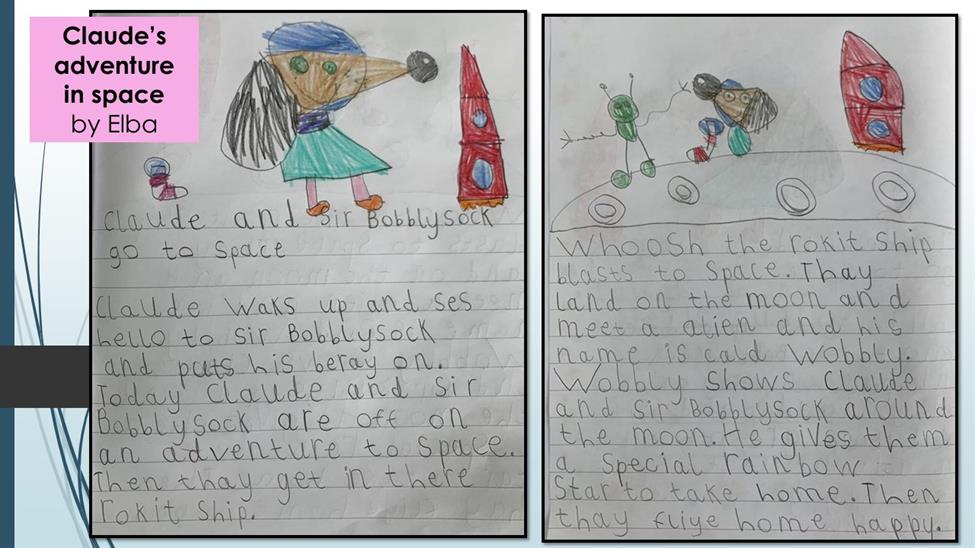 Claude's
adventure
in space
by Elba
Claude and Sir Bobblysock
go to Space
Claude waks up and ses
hello to Sir Bobblysock
and puts his beray on.
Today Claude and Sir
Bobblysock are off on
an adventure to Space.
Then thay get in there
rokit Ship.
Whoosh the rokit Ship
blasts to Space. Thay
land on the moon and
meet a alien and his
name is cald Wobbly.
Wobbly Shows Claude
and Sir Bobblysock around
the moon. He gives them
a Special rainbow
Star to take home. Then
thay fliye home happy.